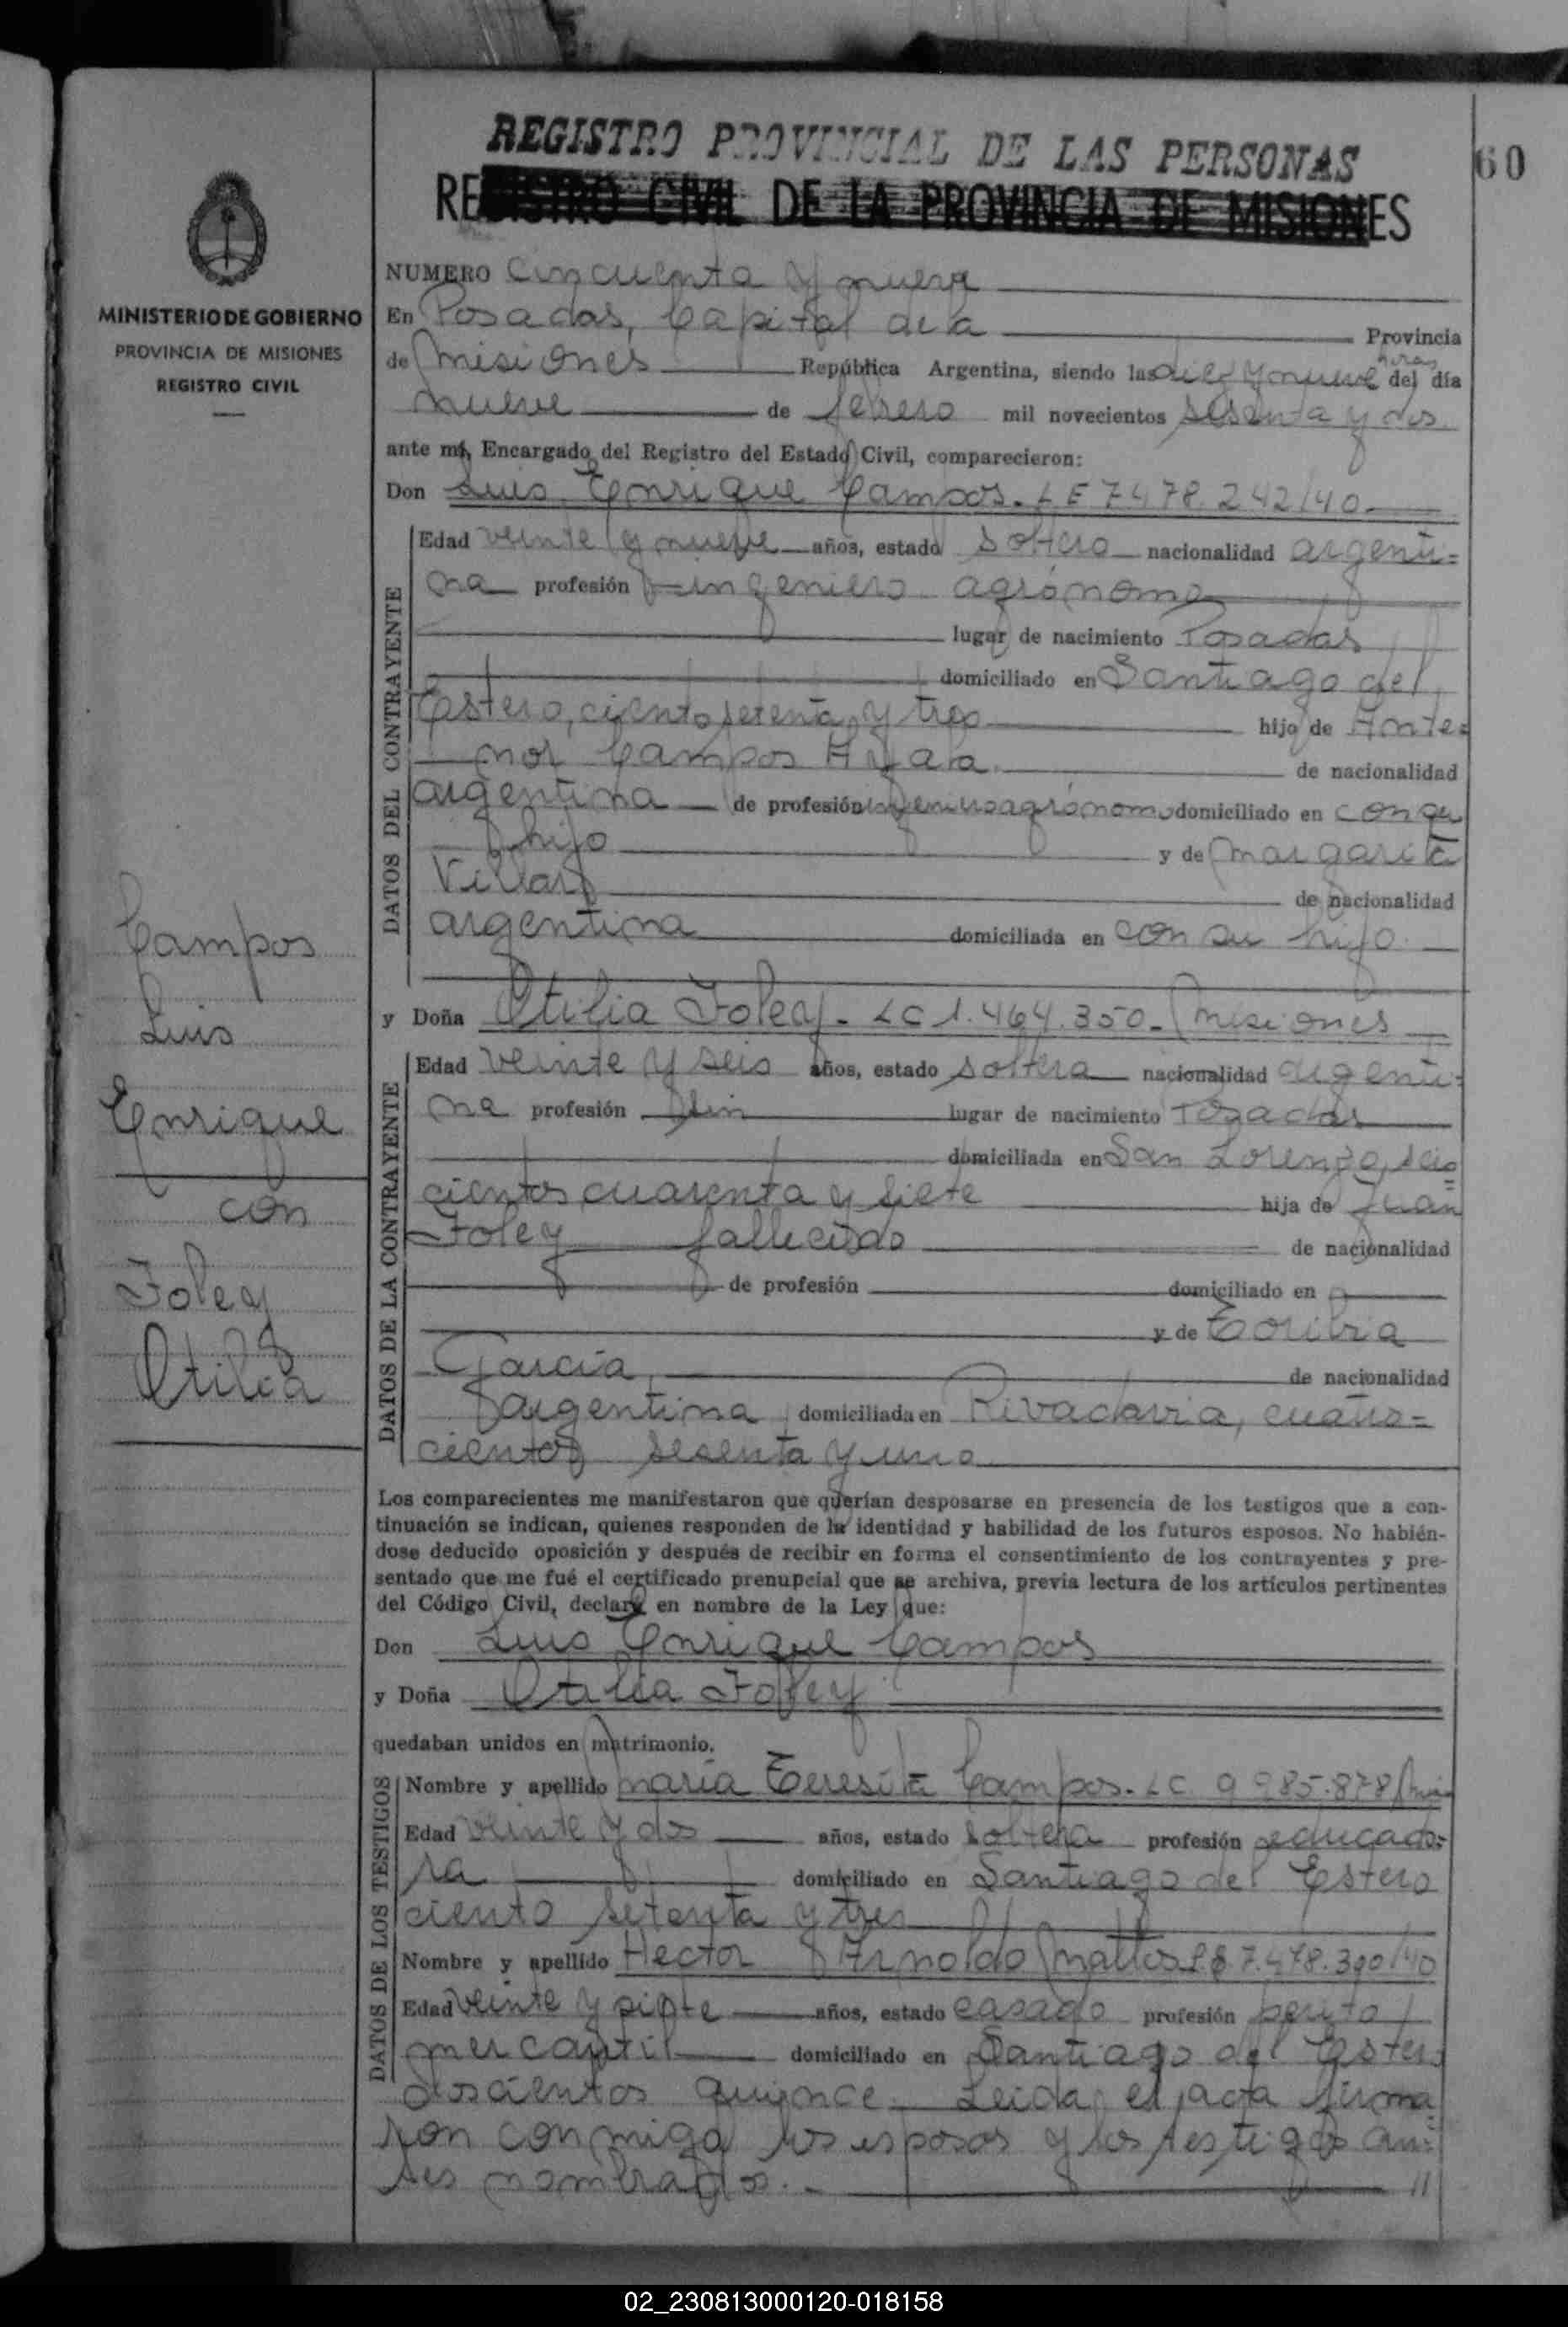 REGISTRO PROVINCIAL DE LAS PERSONAS
60
REGISTRO CIVIL DE LA PROVINCIA DE MISIONES
MINISTERIO DE GOBIERNO
PROVINCIA DE MISIONES
REGISTRO CIVIL
Campos
Luis
Enrique
con
Foley
Otilia
NUMERO cincuenta y nueve
En Posadas, Capital de la Provincia
de Misiones República Argentina, siendo las diez y nueve horas del día
nueve de febrero mil novecientos sesenta y dos
ante mí, Encargado del Registro del Estado Civil, comparecieron:
Don Luis Enrique Campos. LE 7.478.242/40
DATOS DEL CONTRAYENTE
Edad veinte y nueve años, estado soltero nacionalidad argenti=
na profesión ingeniero agrónomo
lugar de nacimiento Posadas
domiciliado en Santiago del
Estero, ciento setenta y tres hijo de Ante=
nor Campos Ayala de nacionalidad
argentina de profesión ingeniero agrónomo domiciliado en con su
hijo y de Margarita
Villar de nacionalidad
argentina domiciliada en con su hijo.
y Doña Otilia Foley. LC 1.464.350. Misiones
DATOS DE LA CONTRAYENTE
Edad veinte y seis años, estado soltera nacionalidad argenti=
na profesión sin lugar de nacimiento Posadas
domiciliada en San Lorenzo, seis
cientos cuarenta y siete hija de Juan
Foley fallecido de nacionalidad
de profesión domiciliado en
y de Toribia
García de nacionalidad
argentina domiciliada en Rivadavia, cuatro=
cientos sesenta y uno
Los comparecientes me manifestaron que querían desposarse en presencia de los testigos que a con-
tinuación se indican, quienes responden de la identidad y habilidad de los futuros esposos. No habién-
dose deducido oposición y después de recibir en forma el consentimiento de los contrayentes y pre-
sentado que me fué el certificado prenupcial que se archiva, previa lectura de los artículos pertinentes
del Código Civil, declaré en nombre de la Ley que:
Don Luis Enrique Campos
y Doña Otilia Foley
quedaban unidos en matrimonio.
DATOS DE LOS TESTIGOS
Nombre y apellido María Teresita Campos. LC. 9.985.878
Edad veinte y dos años, estado soltera profesión educado=
ra domiciliado en Santiago del Estero
ciento setenta y tres
Nombre y apellido Hector Arnoldo Mattos LE 7.478.390/40
Edad veinte y siete años, estado casado profesión perito
mercantil domiciliado en Santiago del Estero
doscientos quince. Leida el acta firma
ron conmigo los esposos y los testigos an=
tes nombrados. //
02_230813000120-018158